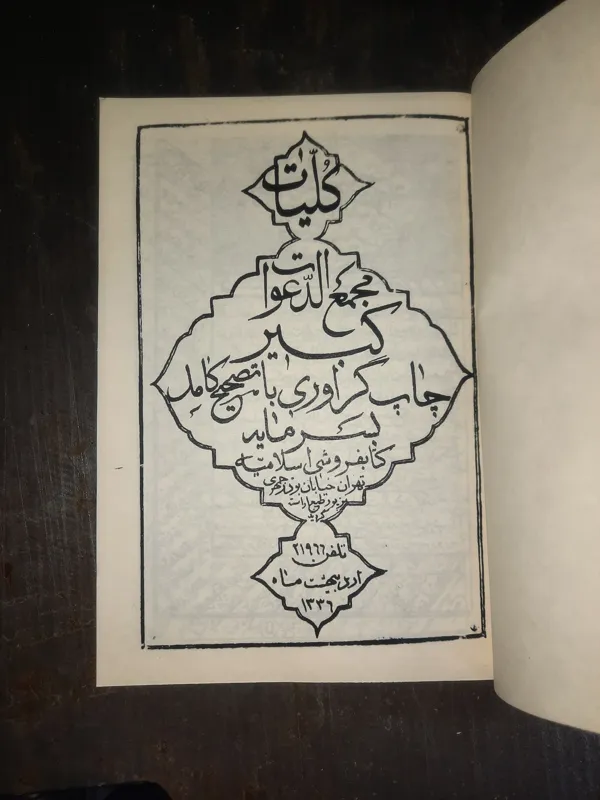 کُلّیات
مجمع الدّعوات
کبیر
چاپ گراوری با تصحیح کامل
بسرمایه
کتابفروشی اسلامیه
تهران خیابان بوذرجمهری
بزیور طبع آراسته
گردید
تلفن ۲۱۹۶۶
اردیبهشت ماه
۱۳۳۶